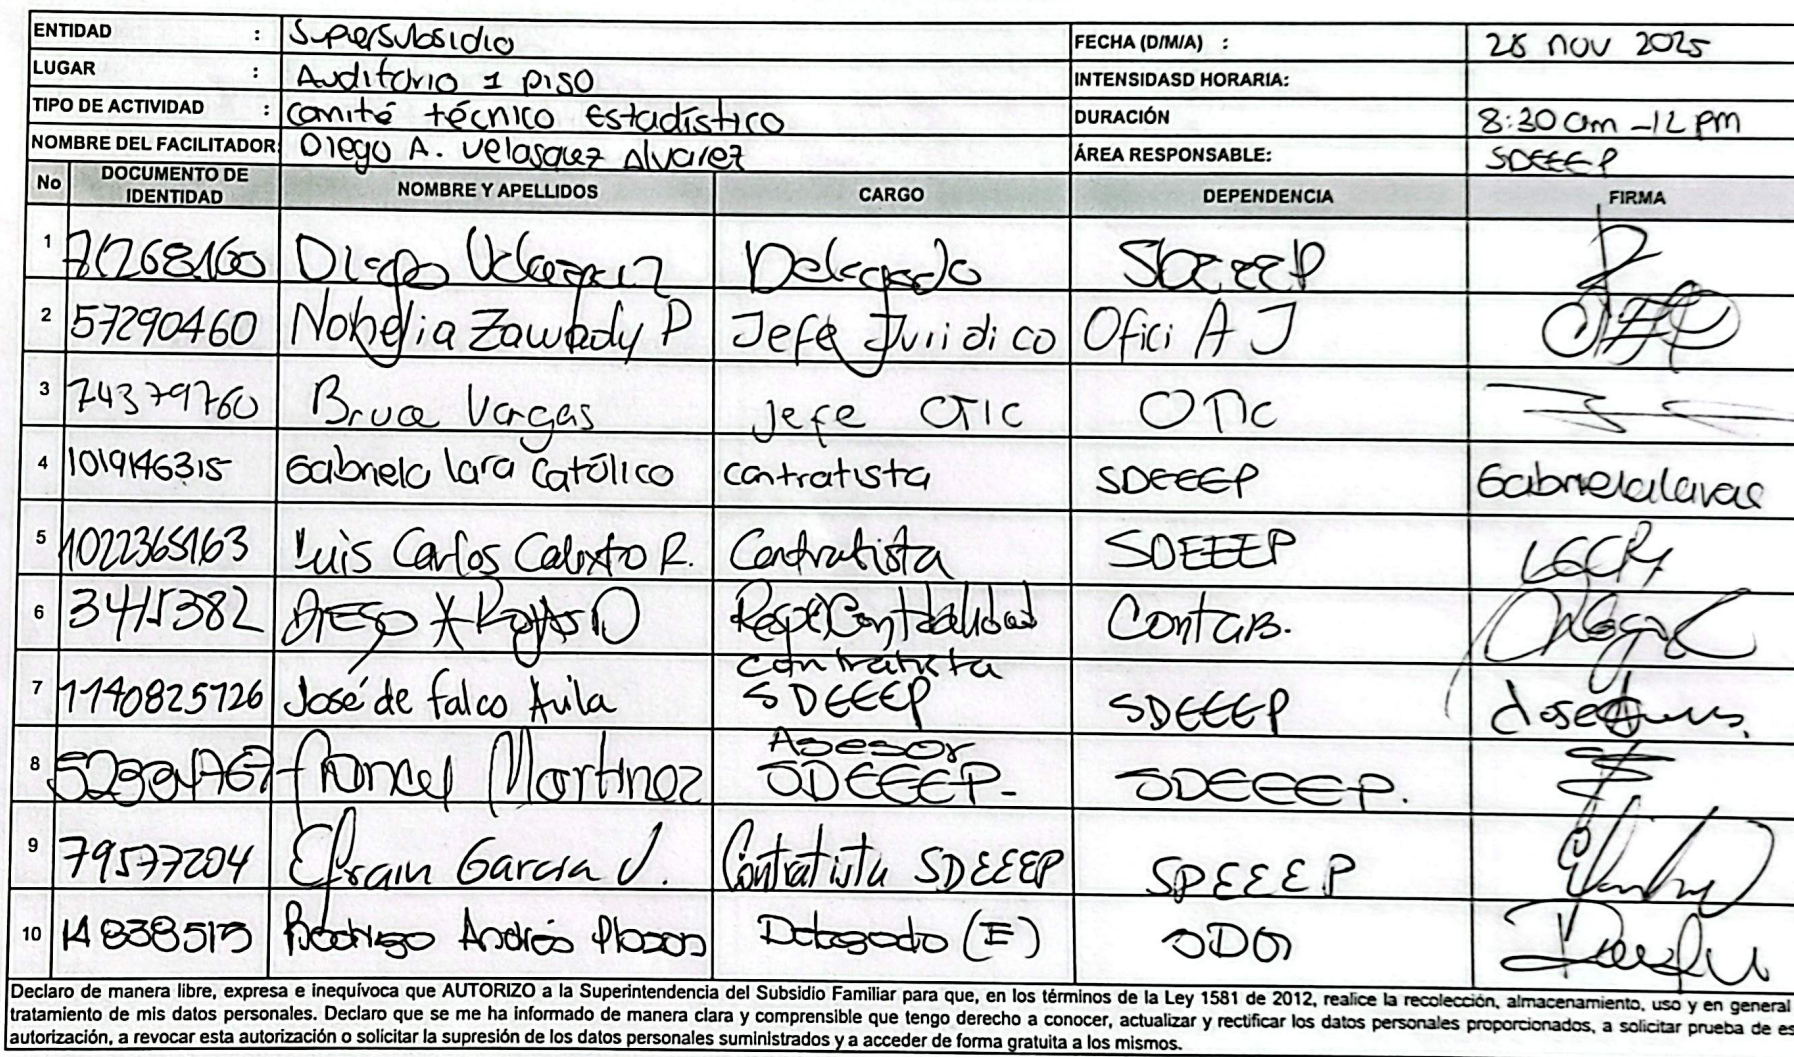 ENTIDAD : Supersubsidio FECHA (D/M/A) : 28 nov 2025
LUGAR : Auditorio 1 piso INTENSIDASD HORARIA:
TIPO DE ACTIVIDAD : Comité técnico Estadístico DURACIÓN 8:30 am - 12 pm
NOMBRE DEL FACILITADOR: Diego A. Velasquez Alvarez ÁREA RESPONSABLE: SDEEEP
No DOCUMENTO DE IDENTIDAD NOMBRE Y APELLIDOS CARGO DEPENDENCIA FIRMA
1 Diego Velazquez Delegado SDEEEP
2 57290460 Nohelia Zawady P Jefe Juridico Ofici A J
3 74379760 Bruce Vargas Jefe OTIC OTIC
4 1019146315 Gabriela Lara Católico contratista SDEEEP Gabrielalarac
5 1022365163 Luis Carlos Calixto R. Contratista SDEEEP
6 3415382 Diego A Rojas O Resp Contabilidad Contab.
7 1140825726 José de falco Avila contratista SDEEEP SDEEEP
8 Martinez Asesor SDEEEP- SDEEEP.
9 79577204 Efrain Garcia J. Contratista SDEEEP SDEEEP
10 Rodrigo Andrés Delegado (E)
Declaro de manera libre, expresa e inequívoca que AUTORIZO a la Superintendencia del Subsidio Familiar para que, en los términos de la Ley 1581 de 2012, realice la recolección, almacenamiento, uso y en general
tratamiento de mis datos personales. Declaro que se me ha informado de manera clara y comprensible que tengo derecho a conocer, actualizar y rectificar los datos personales proporcionados, a solicitar prueba de es
autorización, a revocar esta autorización o solicitar la supresión de los datos personales suministrados y a acceder de forma gratuita a los mismos.